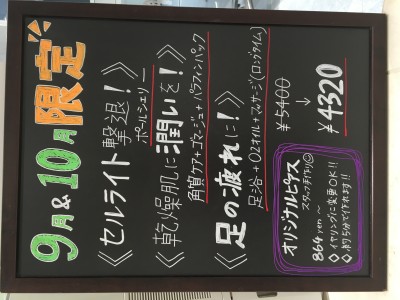 9月&10月限定
《セルライト撃退!》
ポールシェリー
《乾燥肌に潤いを!》
角質ケア+ゴマージュ+パラフィンパック
《足の疲れに!》
足浴+O2オイル+マッサージ(ロングタイム)
¥5400
↓
¥4320
オリジナルピアス
スタッフ手作り☺
864yen〜
◇イヤリングに変更OK!!
◇約5分で作れます!!